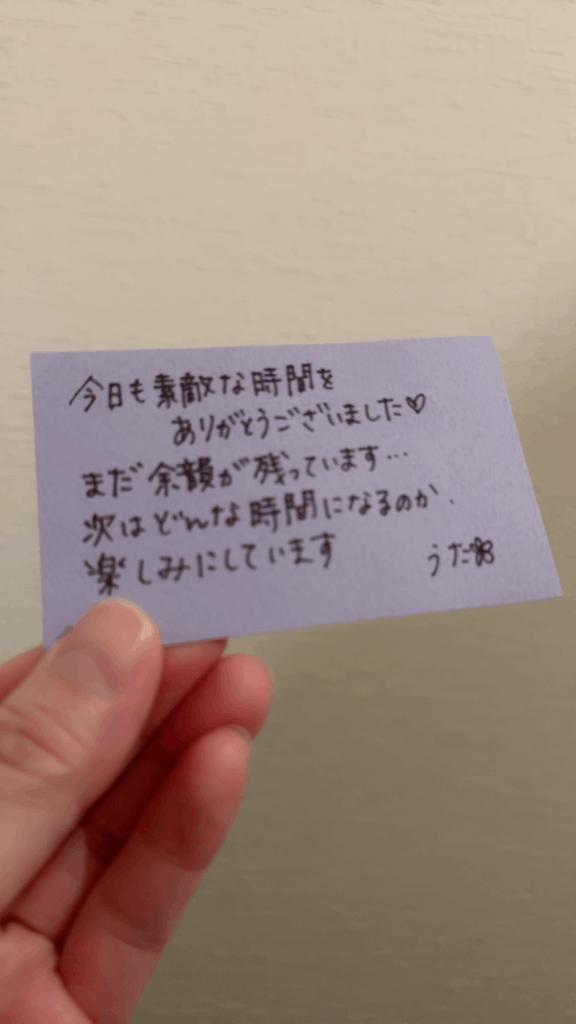 今日も素敵な時間を
ありがとうございました♡
まだ余韻が残っています…
次はどんな時間になるのか、
楽しみにしています
うた